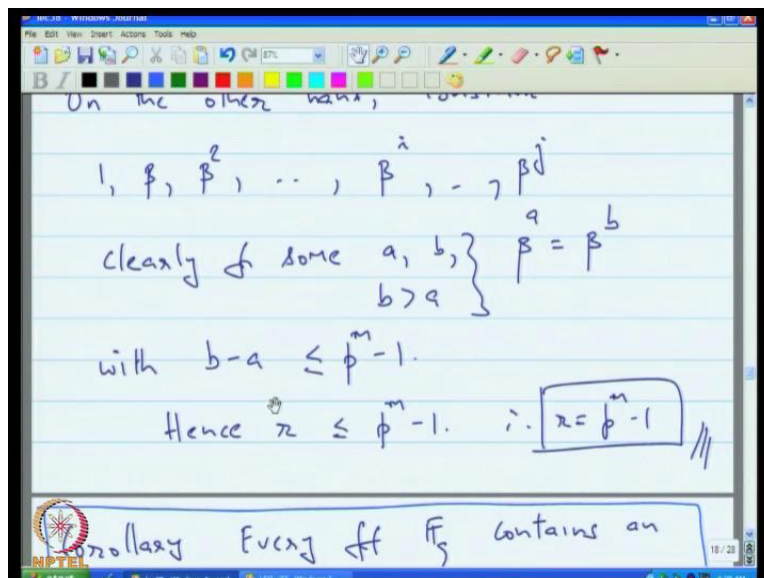 lec38 - Windows Journal
File Edit View Insert Actions Tools Help
87%
B I
On the other hand,
1, β, β², .., β^i, .., β^j
clearly f some a, b, } β^a = β^b
b > a
with b-a ≤ p^m - 1.
Hence r ≤ p^m - 1. ∴ r = p^m - 1 ///
Corollary Every ff F_q contains an
18 / 28
NPTEL